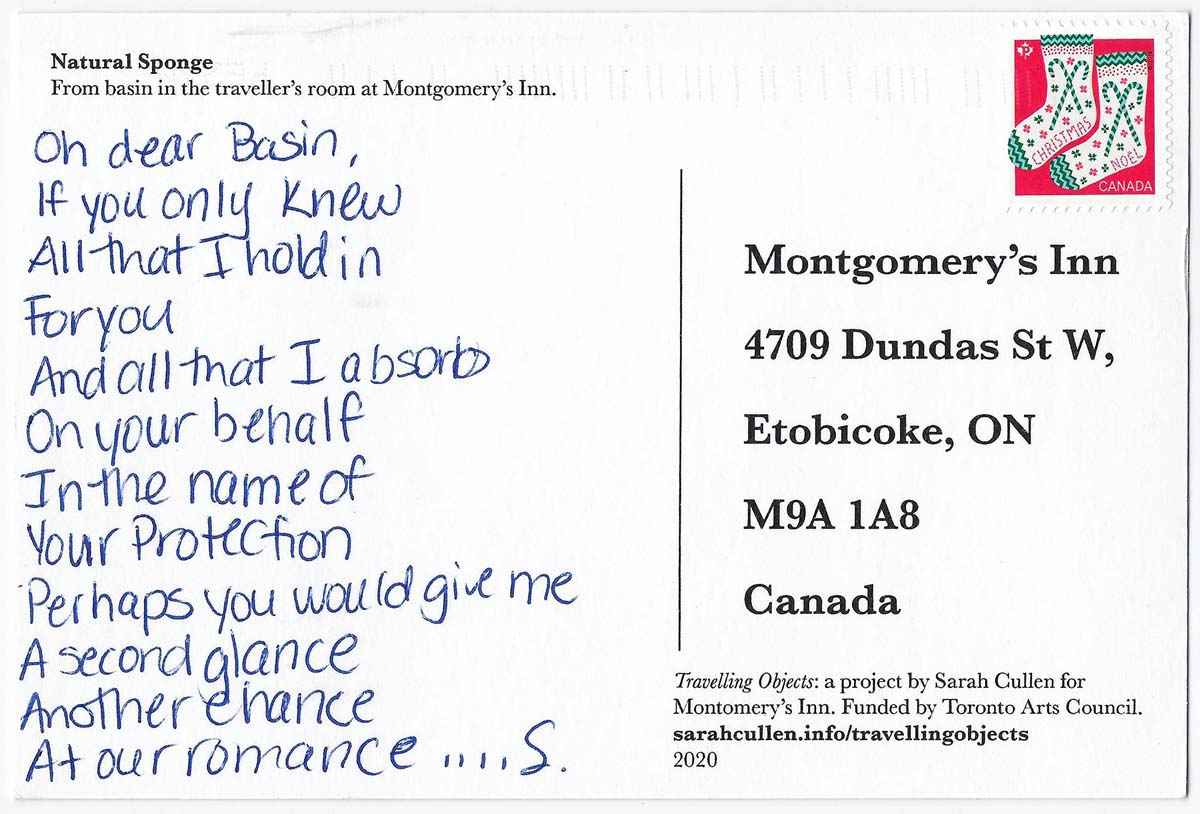 Natural Sponge
From basin in the traveller's room at Montgomery's Inn.
Oh dear Basin,
If you only knew
All that I hold in
For you
And all that I absorb
On your behalf
In the name of
Your Protection
Perhaps you would give me
A second glance
Another chance
At our romance .....S.
CHRISTMAS
NOËL
CANADA
Montgomery's Inn
4709 Dundas St W,
Etobicoke, ON
M9A 1A8
Canada
Travelling Objects: a project by Sarah Cullen for
Montomery's Inn. Funded by Toronto Arts Council.
sarahcullen.info/travellingobjects
2020